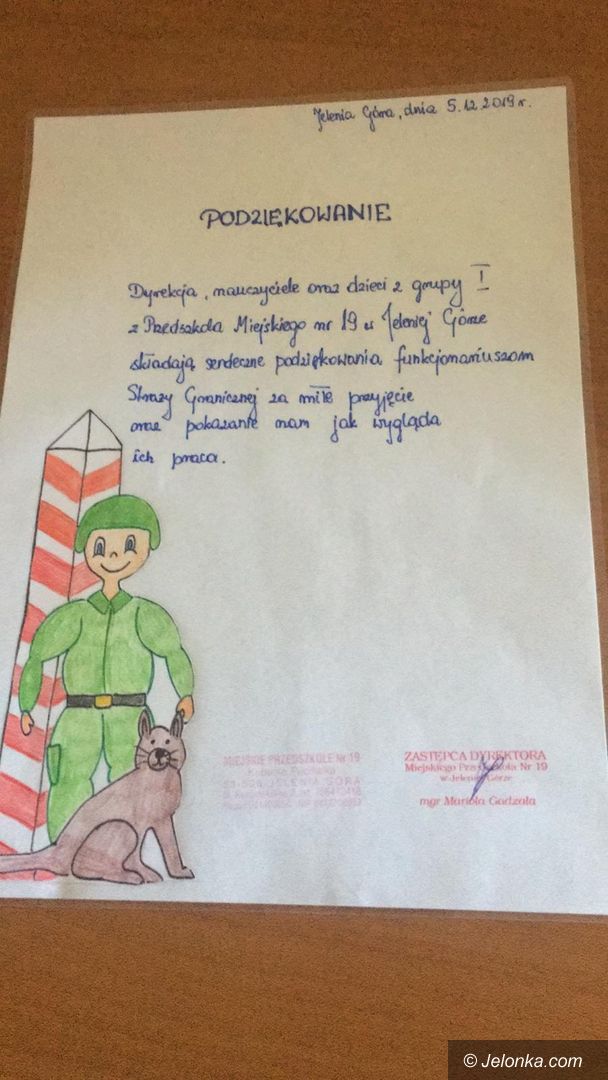 Jelenia Góra, dnia 5.12.2019 r.
PODZIĘKOWANIE
Dyrekcja, nauczyciele oraz dzieci z grupy I
z Przedszkola Miejskiego nr 19 w Jeleniej Górze
składają serdeczne podziękowania funkcjonariuszom
Straży Granicznej za miłe przyjęcie
oraz pokazanie nam jak wygląda
ich praca.
MIEJSKIE PRZEDSZKOLE Nr 19
JELENIA GÓRA
ZASTĘPCA DYREKTORA
Miejskiego Przedszkola Nr 19
w Jeleniej Górze
mgr Mariola Gadzała
© Jelonka.com